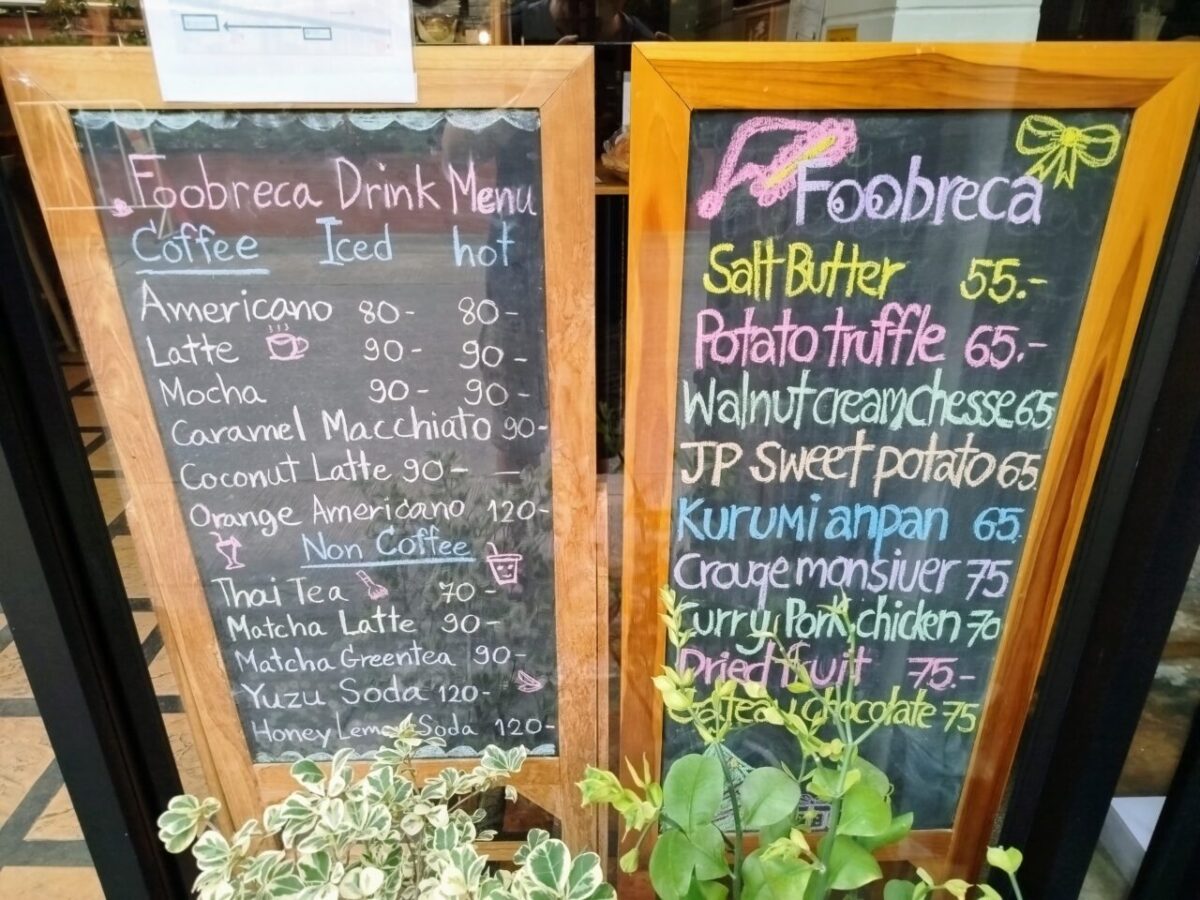 Foobreca Drink Menu
Coffee Iced hot
Americano 80- 80-
Latte 90- 90-
Mocha 90- 90-
Caramel Macchiato 90-
Coconut Latte 90- —
Orange Americano 120-
Non Coffee
Thai Tea 70-
Matcha Latte 90-
Matcha Greentea 90-
Yuzu Soda 120-
Honey Lemon Soda 120-
Foobreca
Salt Butter 55.-
Potato truffle 65.-
Walnut creamchesse 65.
JP sweet potato 65.
Kurumi anpan 65.
Crouqe monsiuer 75
Curry Pork, chicken 70
Dried fruit 75.-
chocolate 75